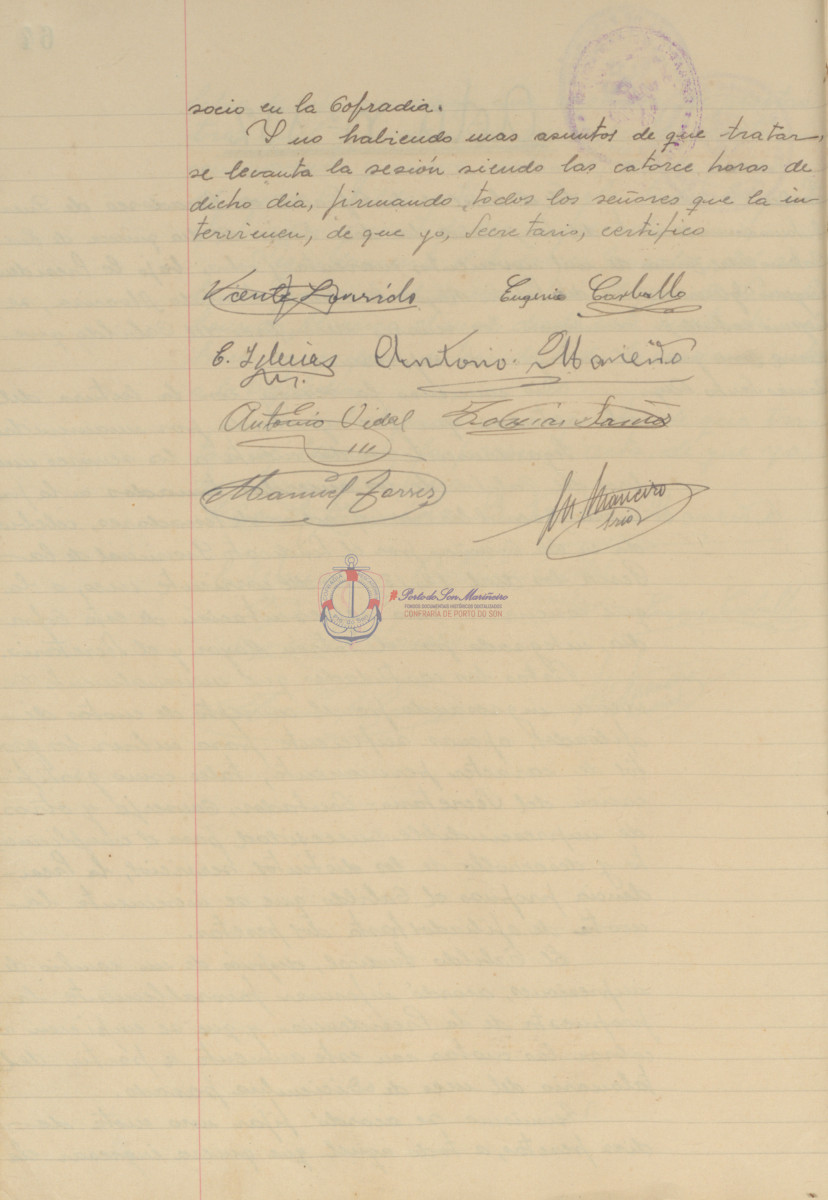 socio en la Cofradia.
Y no habiendo mas asuntos de que tratar,
se levanta la sesión siendo las catorce horas de
dicho dia, firmando todos los señores que la in-
tervienen, de que yo, Secretario, certifico
Vicente Garrido Eugenio Carballo
E. Iglesias Antonio Mariño
Antonio Vidal
Manuel Torres M. Maneiro
#PortodoSonMariñeiro
FONDOS DOCUMENTAIS HISTÓRICOS DIXITALIZADOS
CONFRARÍA DE PORTO DO SON